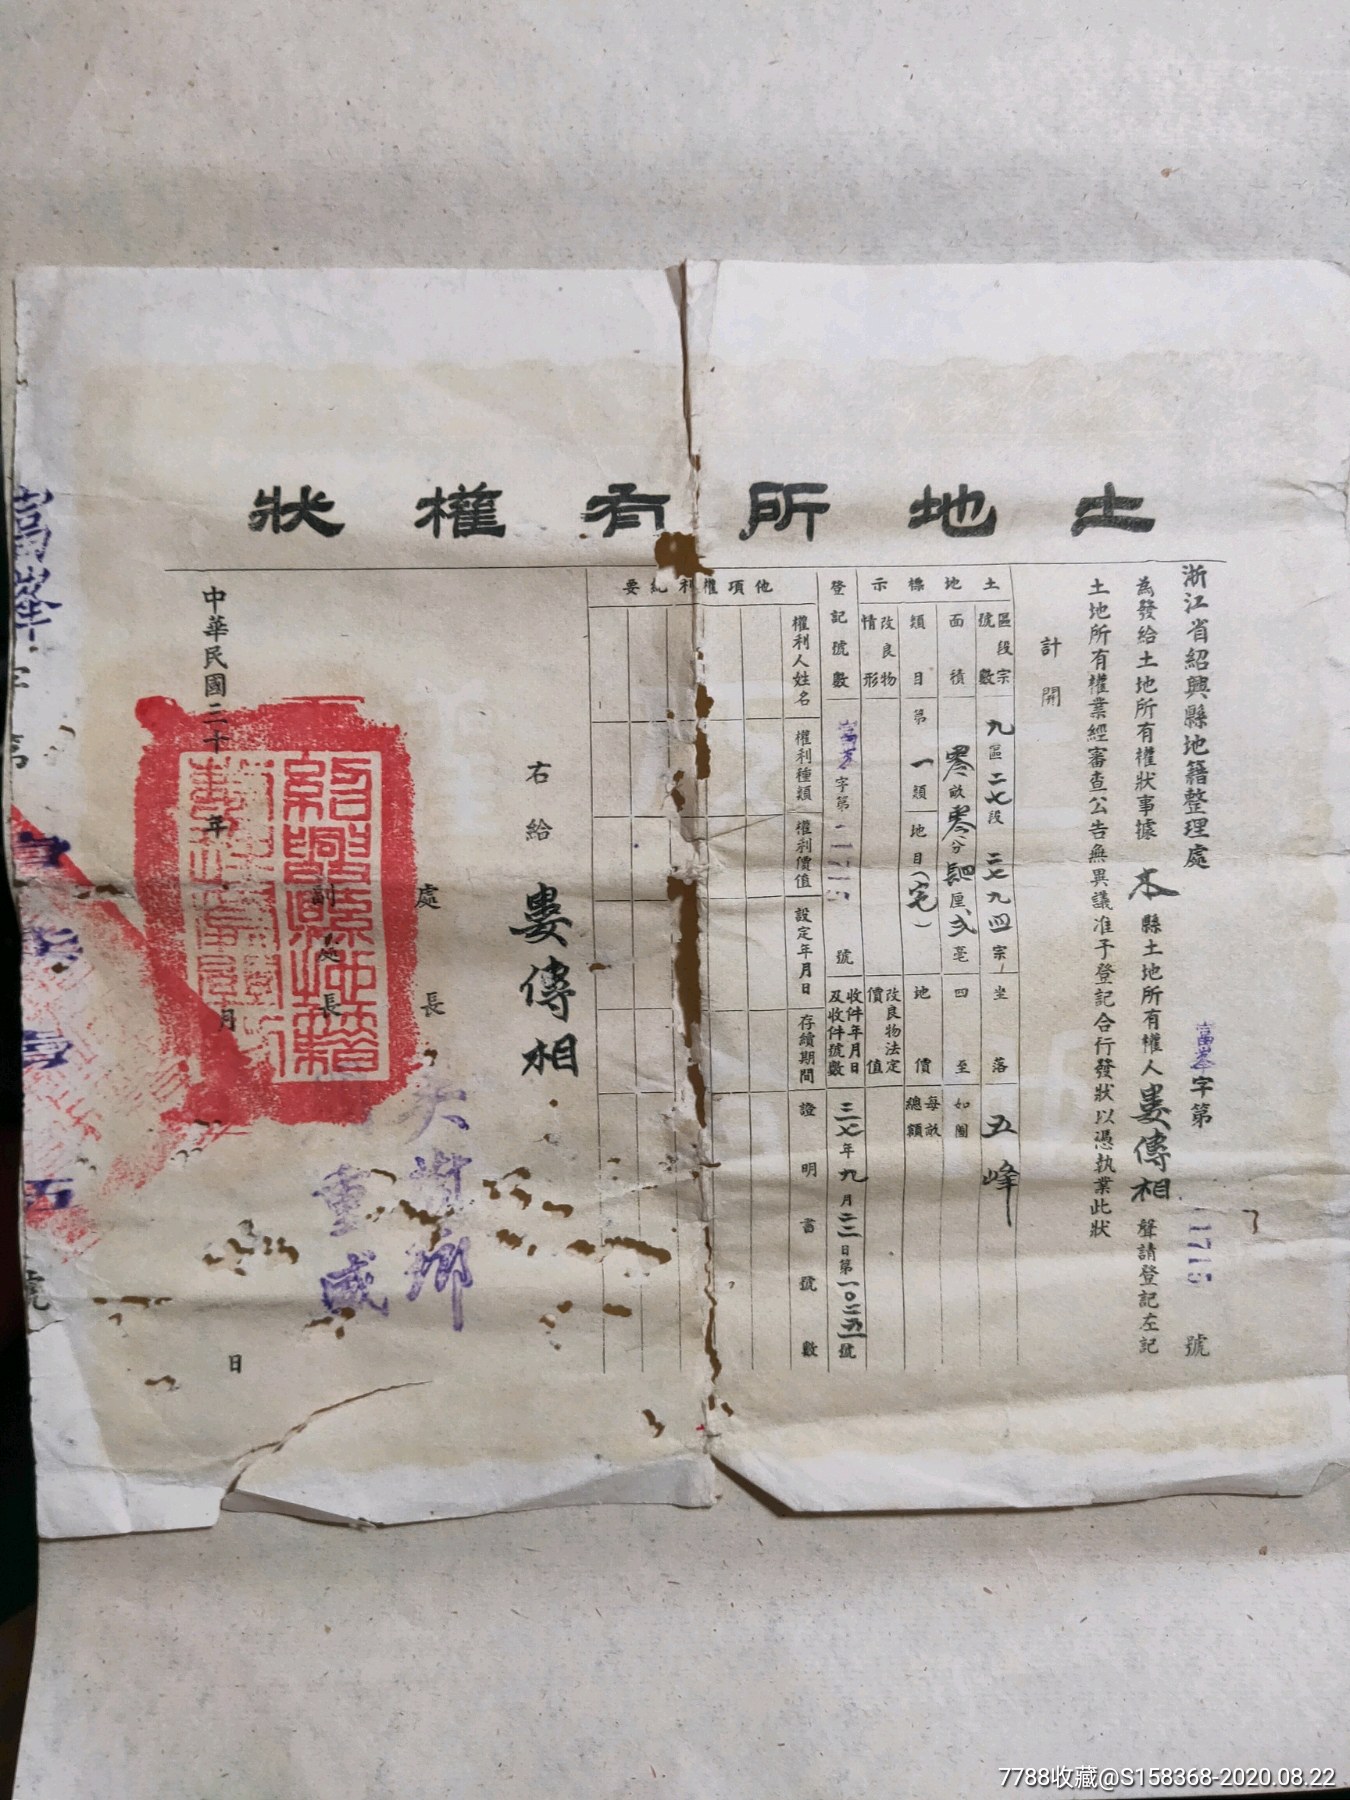 土地所有權狀
浙江省紹興縣地籍整理處
富峯字第 1715 號
為發給土地所有權狀事據 本 縣土地所有權人 婁傳相 聲請登記左記
土地所有權業經審查公告無異議准予登記合行發狀以憑執業此狀
計開
土地標示
區段宗號數 九區二七段二七九四宗 坐落 五峰
面積 零畝零分肆厘弍毫 四至 如圖
類目 第一類地目(宅) 地價 每畝 總額
改良物情形 改良物法定價值
登記號數 富峯字第 1715 號 收件年月日及收件號數 三七年九月二二日第一〇二五號
他項權利紀要
權利人姓名 權利種類 權利價值 設定年月日 存續期間 證明書號數
右給 婁傳相
處長
副處長
重威
中華民國三十年 月 日
富峯字第
號
7788收藏@S158368-2020.08.22